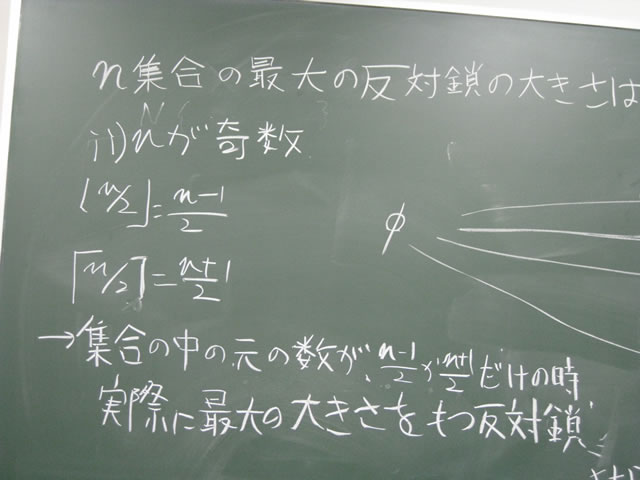 n集合の最大の反対鎖の大きさは
ii) nが奇数
⌊n/2⌋=(n-1)/2
φ
⌈n/2⌉=(n+1)/2
→集合の中の元の数が、(n-1)/2か(n+1)/2だけの時
実際に最大の大きさをもつ反対鎖